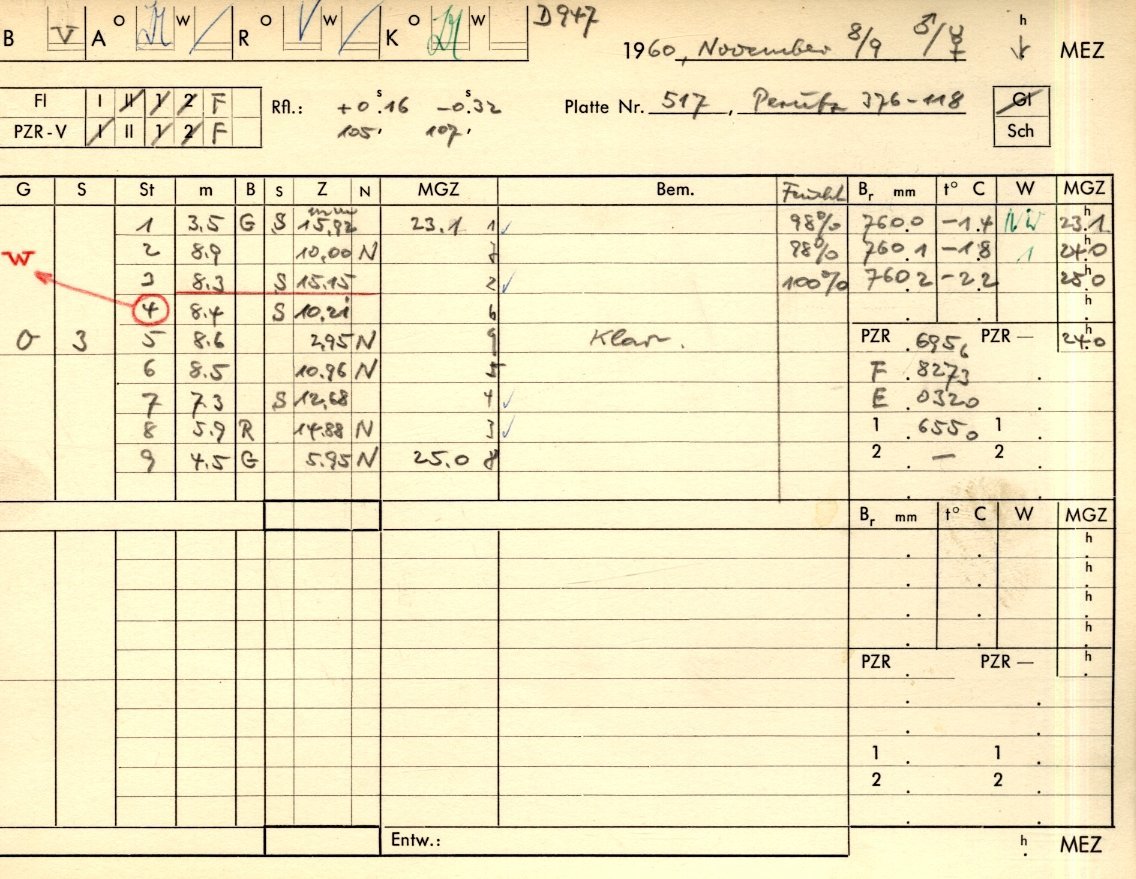 B V A O W R O W K O W D947
1960, November 8/9 ♂/☿ h MEZ
FI I II 1 2 F Rfl.: +0ˢ.16 −0ˢ.32 Platte Nr. 517, Perutz 376-118 Gl
PZR-V I II 1 2 F 105' 107' Sch
G S St m B S Z N MGZ Bem. Feucht Bᵣ mm t° C W MGZ
1 3.5 G S 15,92 23.1 1 98% 760.0 −1.4 NW 23.1
W 2 8.9 10,00 N 7 98% 760.1 −1.8 1 24.0
3 8.3 S 15.15 2 100% 760.2 −2.2 25.0
4 8.4 S 10,21 6 h
0 3 5 8.6 2,95 N 9 Klar. PZR .6956 PZR — 24.0
6 8.5 10.96 N 5 F .8273
7 7.3 S 12,68 4 E .0320
8 5.9 R 14.88 N 3 1 .6550 1
9 4.5 G 5.95 N 25.0 8 2 — 2
Bᵣ mm t° C W MGZ
h
h
h
h
PZR PZR — h
1 1
2 2
Entw.: h MEZ